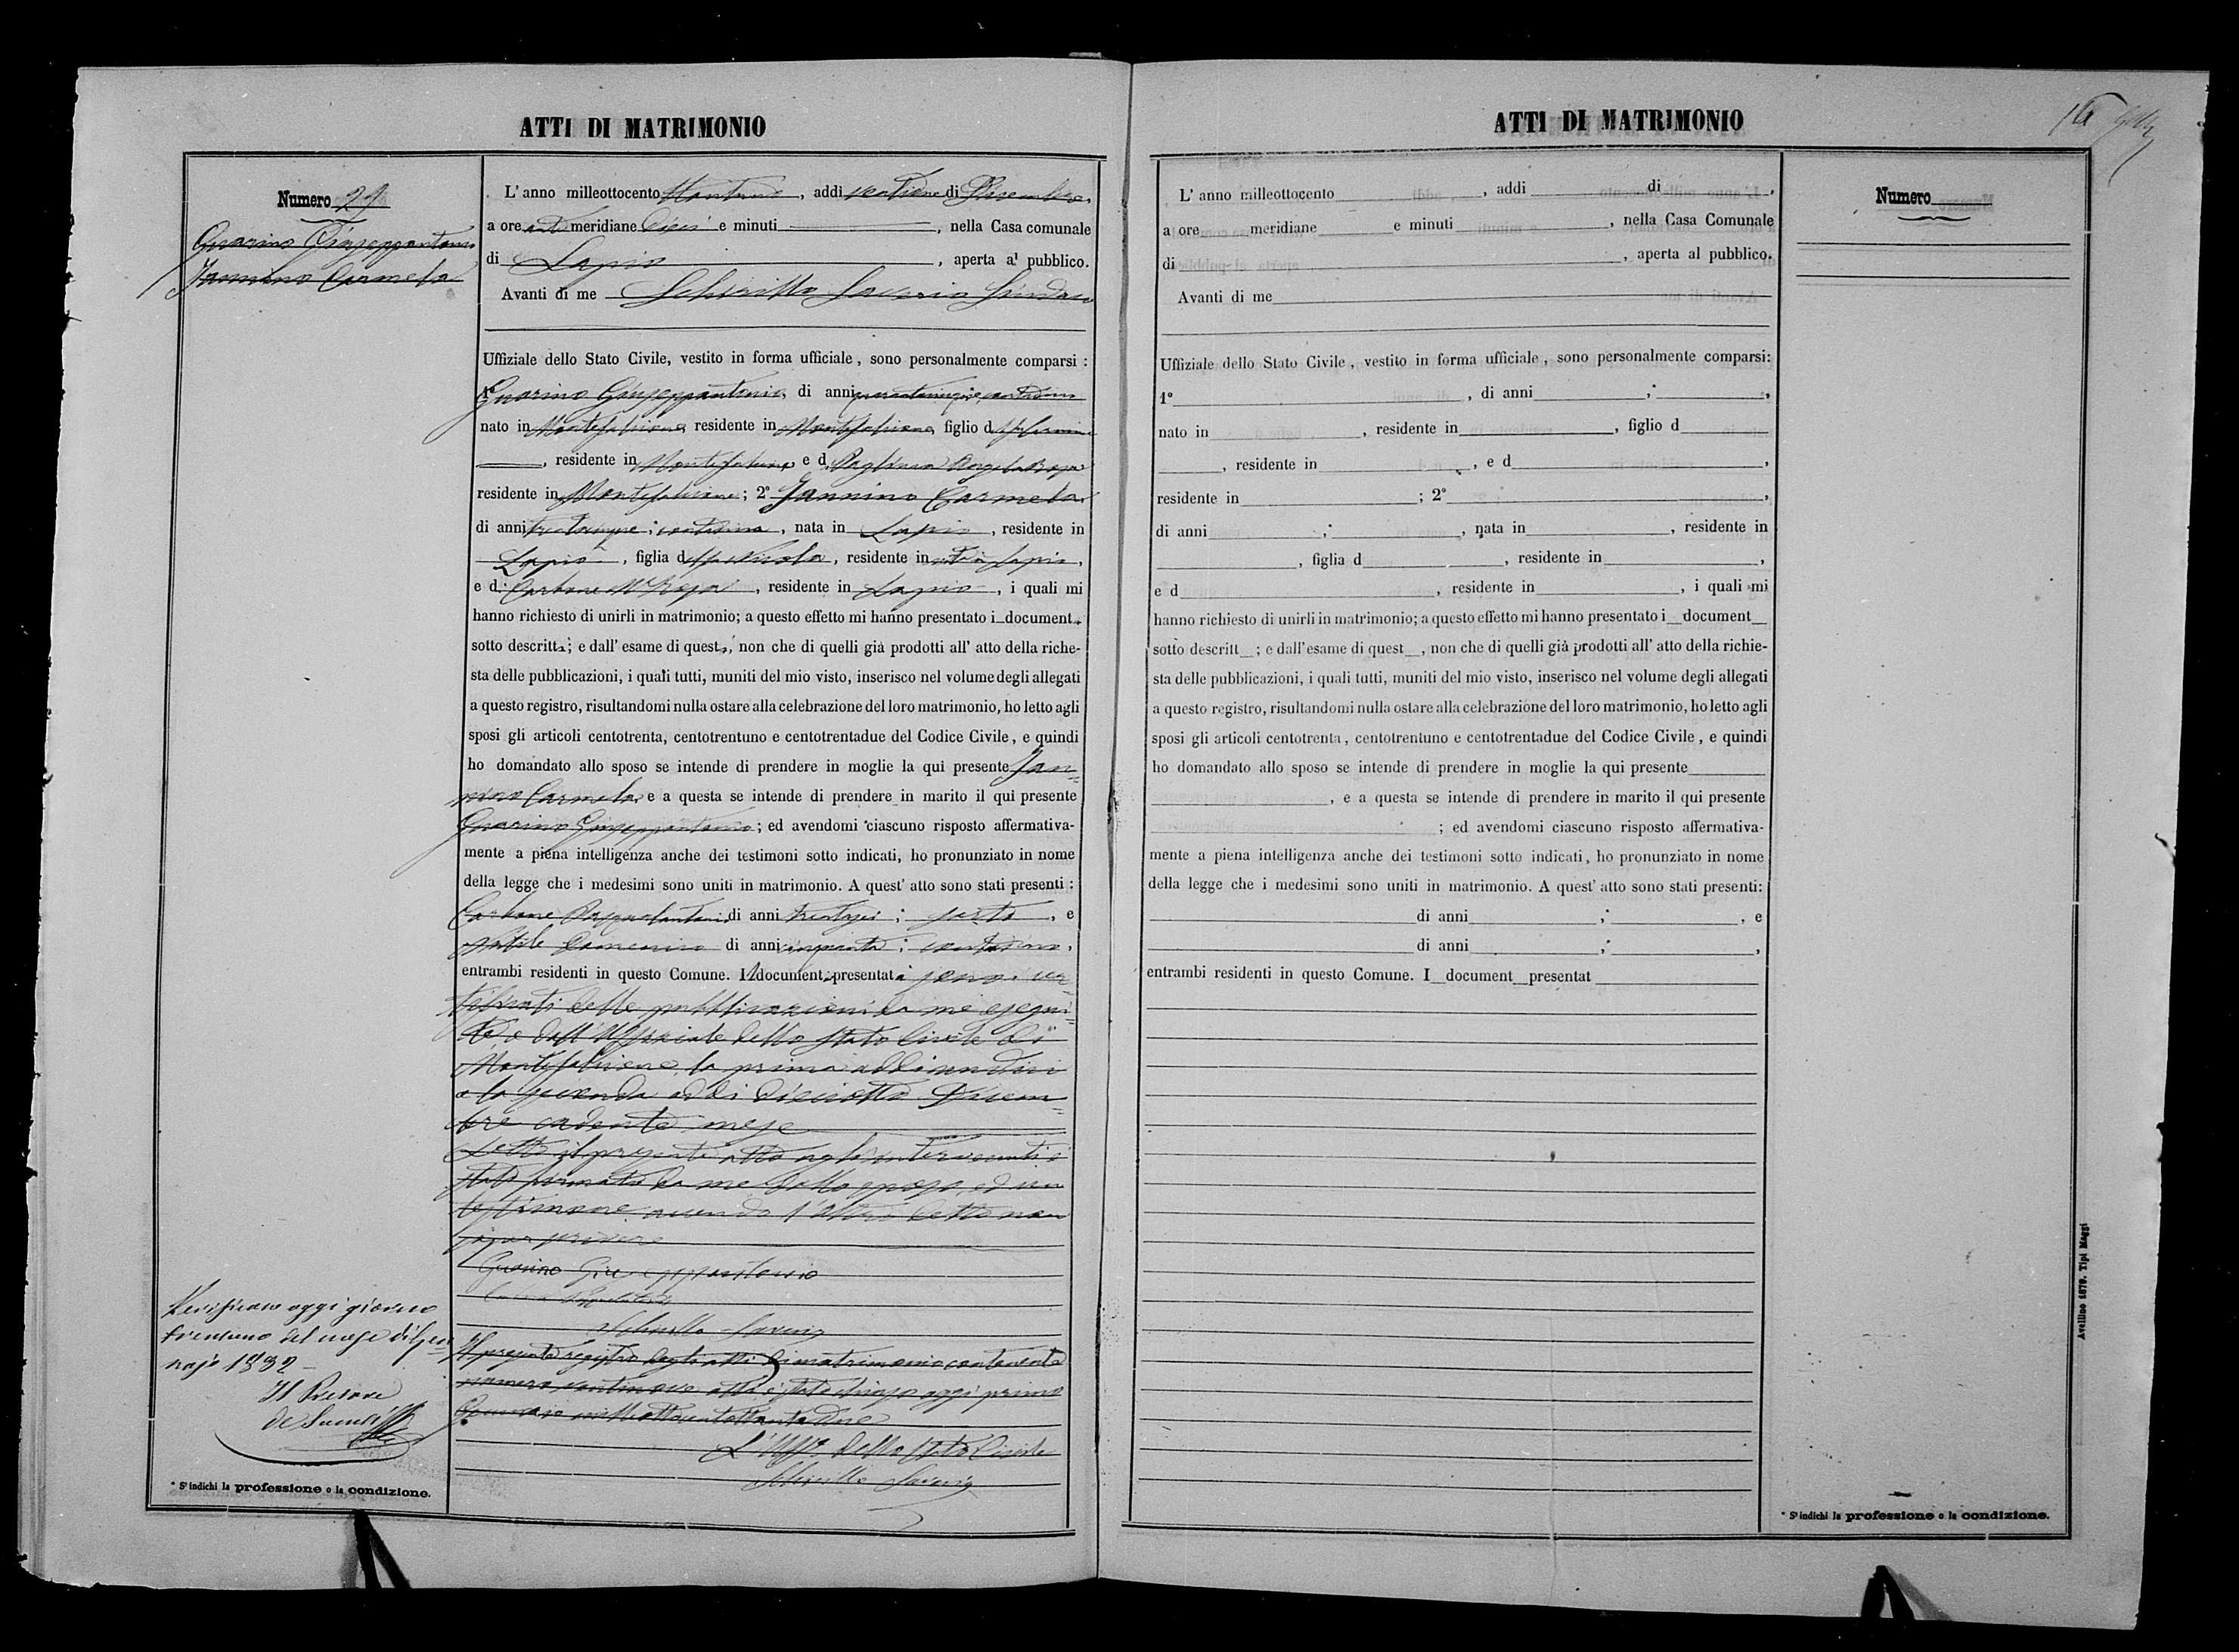 ATTI DI MATRIMONIO
Numero 29
Guarino Giuseppantonio
Jannino Carmela
L' anno milleottocento ottantuno, addì di Dicembre,
a ore anti meridiane dieci e minuti, nella Casa comunale
di Lapio, aperta al pubblico.
Avanti di me Schirillo Saverio Sindaco
Uffiziale dello Stato Civile, vestito in forma ufficiale, sono personalmente comparsi :
1° Guarino Giuseppantonio, di anni contadino
nato in Montefalcione, residente in Montefalcione, figlio d
, residente in Montefalcione, e d Rosa
residente in Montefalcione; 2° Jannino Carmela,
di anni trentacinque; contadina, nata in Lapio, residente in
Lapio, figlia d Nicola, residente in Lapio,
e d Carbone Mª Rosa, residente in Lapio, i quali mi
hanno richiesto di unirli in matrimonio; a questo effetto mi hanno presentato i document
sotto descritti; e dall' esame di questi, non che di quelli già prodotti all' atto della riche-
sta delle pubblicazioni, i quali tutti, muniti del mio visto, inserisco nel volume degli allegati
a questo registro, risultandomi nulla ostare alla celebrazione del loro matrimonio, ho letto agli
sposi gli articoli centotrenta, centotrentuno e centotrentadue del Codice Civile, e quindi
ho domandato allo sposo se intende di prendere in moglie la qui presente Jan=
nino Carmela, e a questa se intende di prendere in marito il qui presente
Guarino Giuseppantonio; ed avendomi ciascuno risposto affermativa-
mente a piena intelligenza anche dei testimoni sotto indicati, ho pronunziato in nome
della legge che i medesimi sono uniti in matrimonio. A quest' atto sono stati presenti :
Carbone Pasqualantonio di anni trentasei; sarto, e
Domenico di anni cinquanta; contadino,
entrambi residenti in questo Comune. I documenti presentati sono i cer=
tificati delle pubblicazioni da me esegui=
te e dall' Uffiziale dello Stato Civile di
Montefalcione, la prima addì undici
e la seconda addì dieciotto Dicem=
bre cadente mese
Letto il presente atto agli intervenuti è
stato firmato da me dallo sposo, ed un
testimone avendo l'altro detto non
saper scrivere
Guarino Giuseppantonio
Schirillo Saverio
Il presente registro degli atti di matrimonio contenente
numero ventinove atti è stato chiuso oggi primo
Gennaio milleottocentottantadue
L'Uffle dello Stato Civile
Schirillo Saverio
Verificato oggi giorno
trentuno del mese di Gen=
najo 1882
Il Pretore
* S'indichi la professione o la condizione.
ATTI DI MATRIMONIO
Numero
L' anno milleottocento, addì di,
a ore meridiane e minuti, nella Casa Comunale
di, aperta al pubblico.
Avanti di me
Uffiziale dello Stato Civile, vestito in forma ufficiale, sono personalmente comparsi:
1°, di anni ;
nato in, residente in, figlio d
, residente in, e d,
residente in ; 2°,
di anni ;, nata in, residente in
, figlia d, residente in,
e d, residente in, i quali mi
hanno richiesto di unirli in matrimonio; a questo effetto mi hanno presentato i document
sotto descritt ; e dall' esame di quest , non che di quelli già prodotti all' atto della richie-
sta delle pubblicazioni, i quali tutti, muniti del mio visto, inserisco nel volume degli allegati
a questo registro, risultandomi nulla ostare alla celebrazione del loro matrimonio, ho letto agli
sposi gli articoli centotrenta, centotrentuno e centotrentadue del Codice Civile, e quindi
ho domandato allo sposo se intende di prendere in moglie la qui presente
, e a questa se intende di prendere in marito il qui presente
; ed avendomi ciascuno risposto affermativa-
mente a piena intelligenza anche dei testimoni sotto indicati, ho pronunziato in nome
della legge che i medesimi sono uniti in matrimonio. A quest' atto sono stati presenti:
di anni ;, e
di anni ;,
entrambi residenti in questo Comune. I document presentat
* S'indichi la professione o la condizione.
Avellino 1879. Tipi Maggi